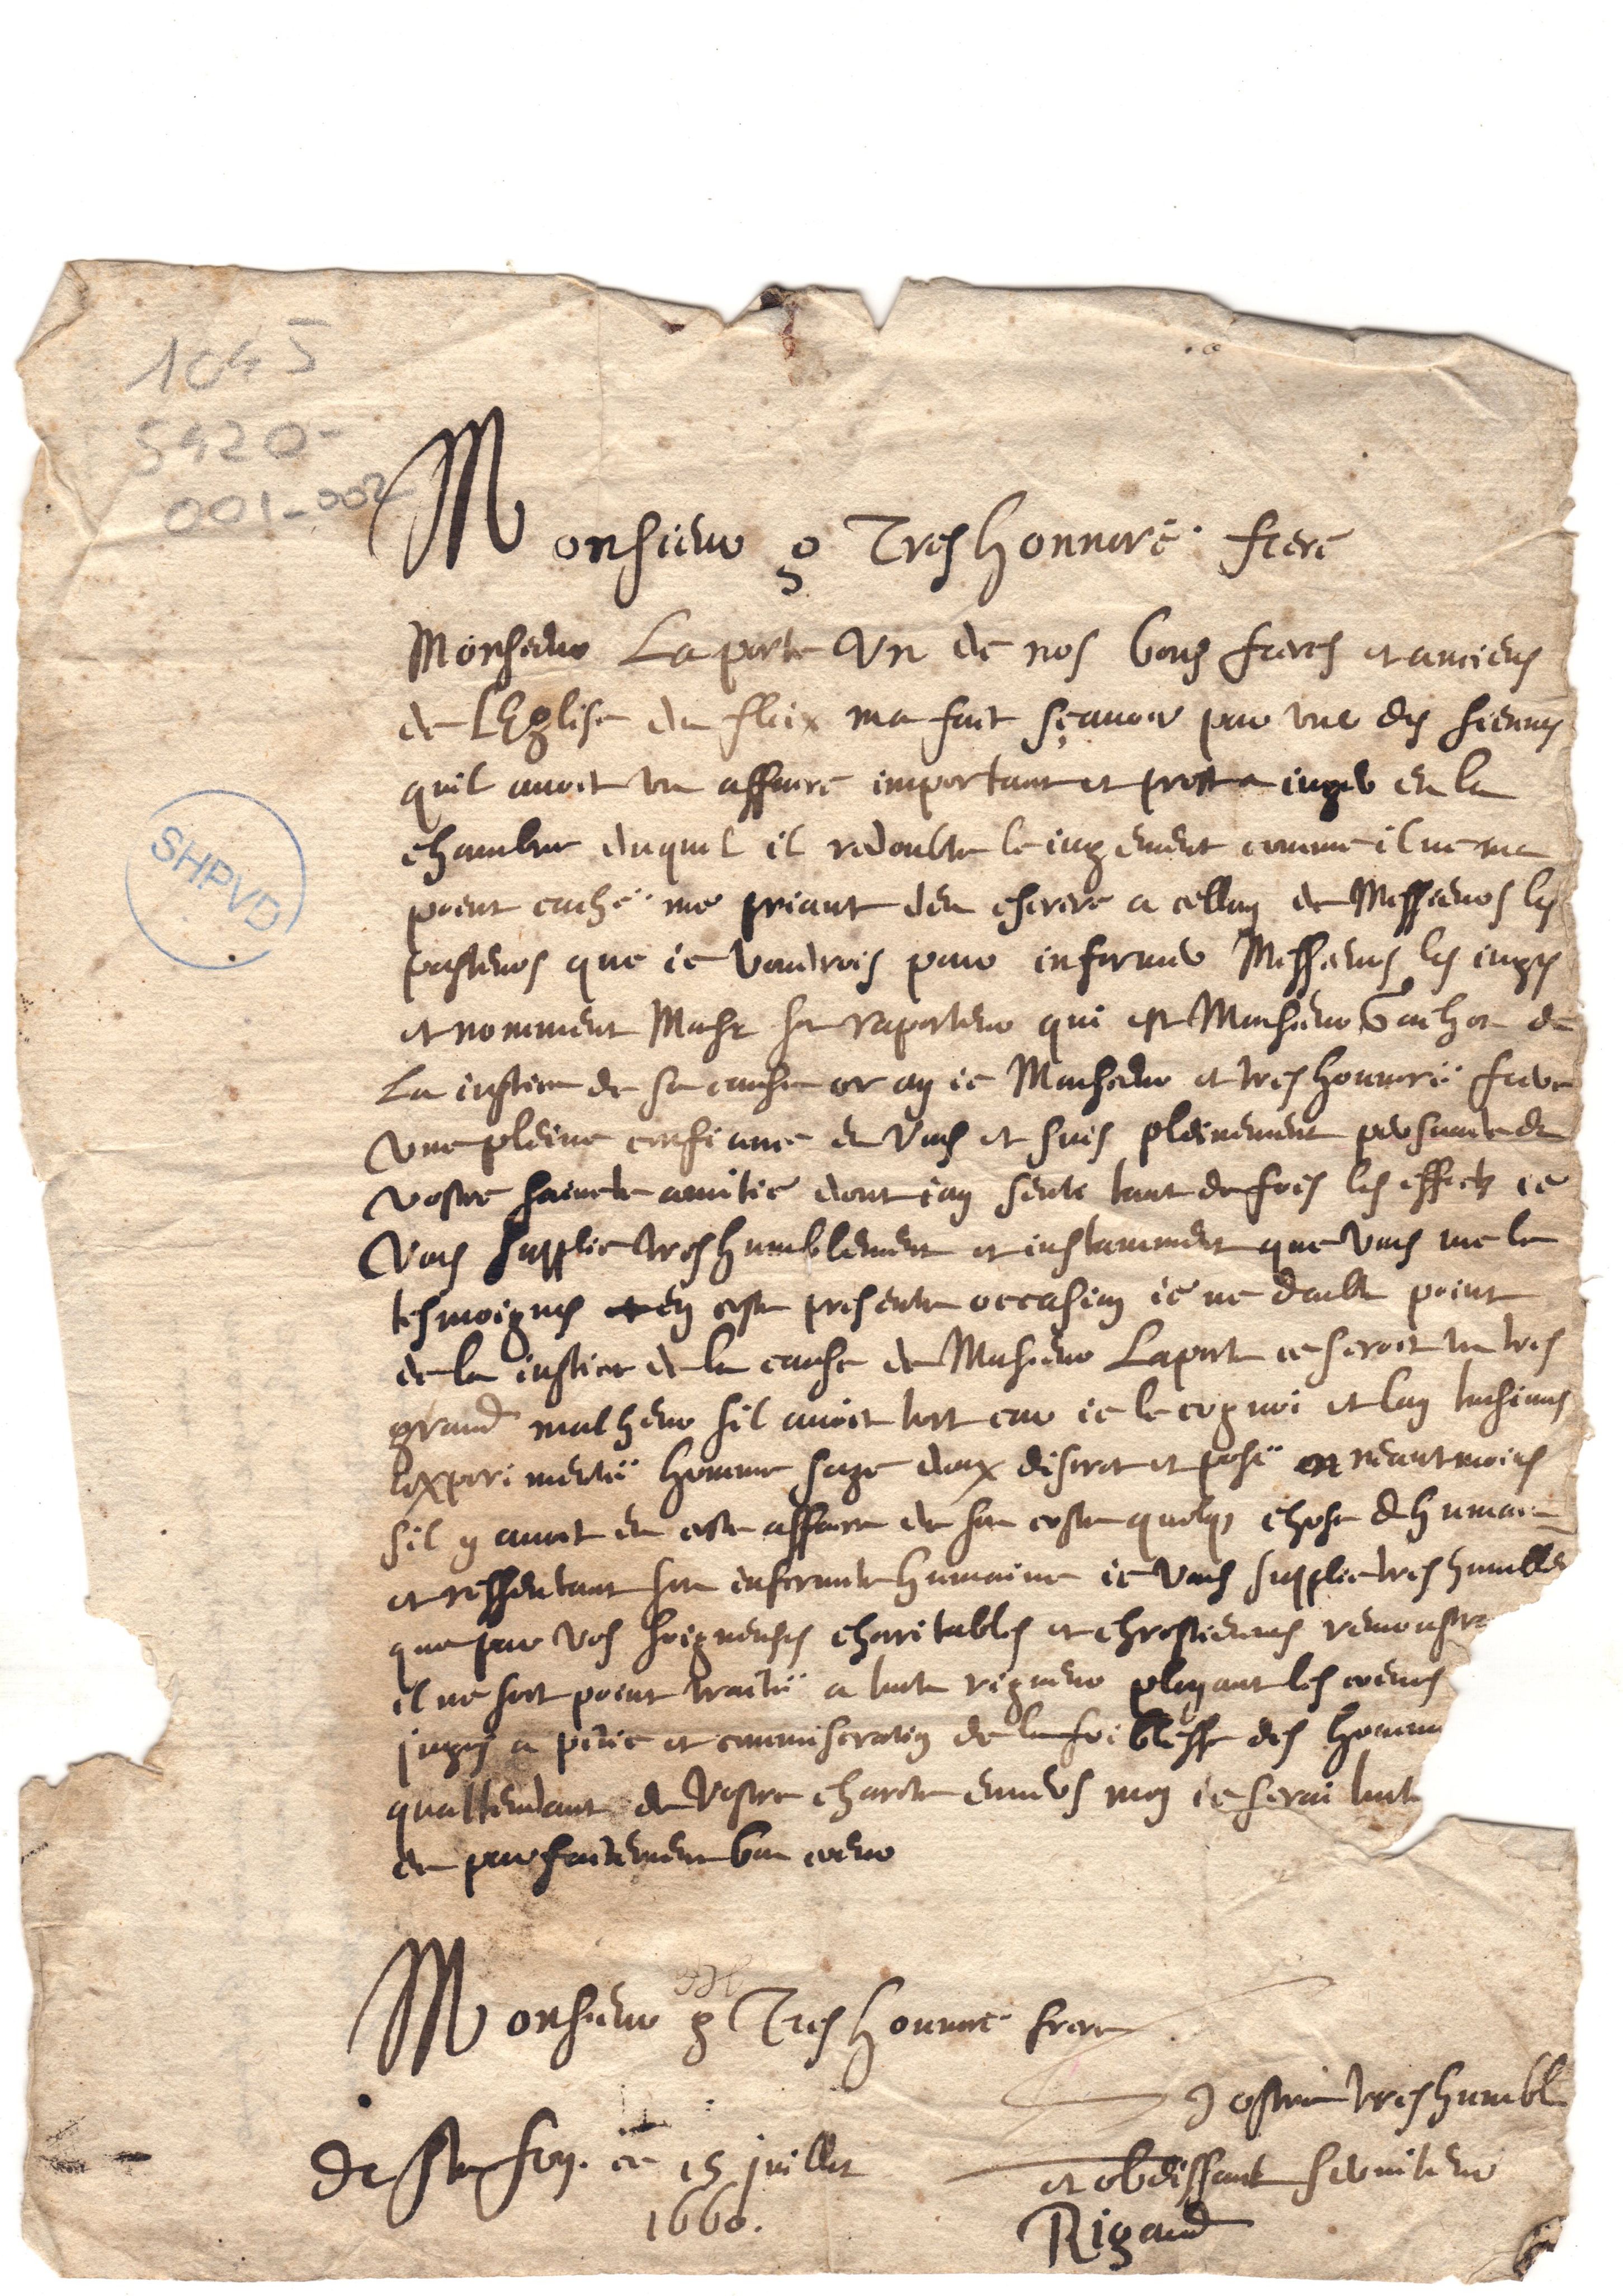 1045
5420-
001-002
SHPVD
Monsieur & Tres honnoré frere
Monsieur Laporte Un de nos bons freres et anciens
de lEglise du fleix ma fait sçavoir par une des siennes
quil avoit un affaire important et prest a juger en la
chambre duquel il redoubte le jugement comme il ne ma
point caché me priant den escrire a celluy de Messieurs les
pasteurs que ie voudrois pour informer Messieurs les juges
et nomment Monsr son raporteur qui est Monsieur de
La justice de sa cause or ay ie Monsieur et tres honnoré frere
une pleine confiance en vous et suis pleinement persuade de
vostre saincte amitié dont iay senti tant de fois les effects ie
Vous supplie tres humblement et instamment que vous me le
tesmoignies en ceste presente occasion ie ne doubte point
de la justice de la cause de Monsieur Laporte ce seroit un tres
grand malheur sil avoit tort car ie le cognoi et lay tousiours
experimenté homme sage doux discret et posé neantmoins
sil y avoit en ceste affaire de son costé quelq chose dhumain
et ressentant son infirmité humaine ie vous supplie tres humble
que par vos soigneuses charitables et chrestiennes remonstra
il ne soit point traitté a toute rigueur ployant les coeurs
juges a pitié et commiseration de la foiblesse des homm
quattendant de vostre charité envers moy ie serai tout
de parfaitement bon coeur
Monsieur & Tres honnoré frere
Vostre tres humbl
De Ste foy. ce 15 juillet
et obeissant serviteur
1660.
Rigaud